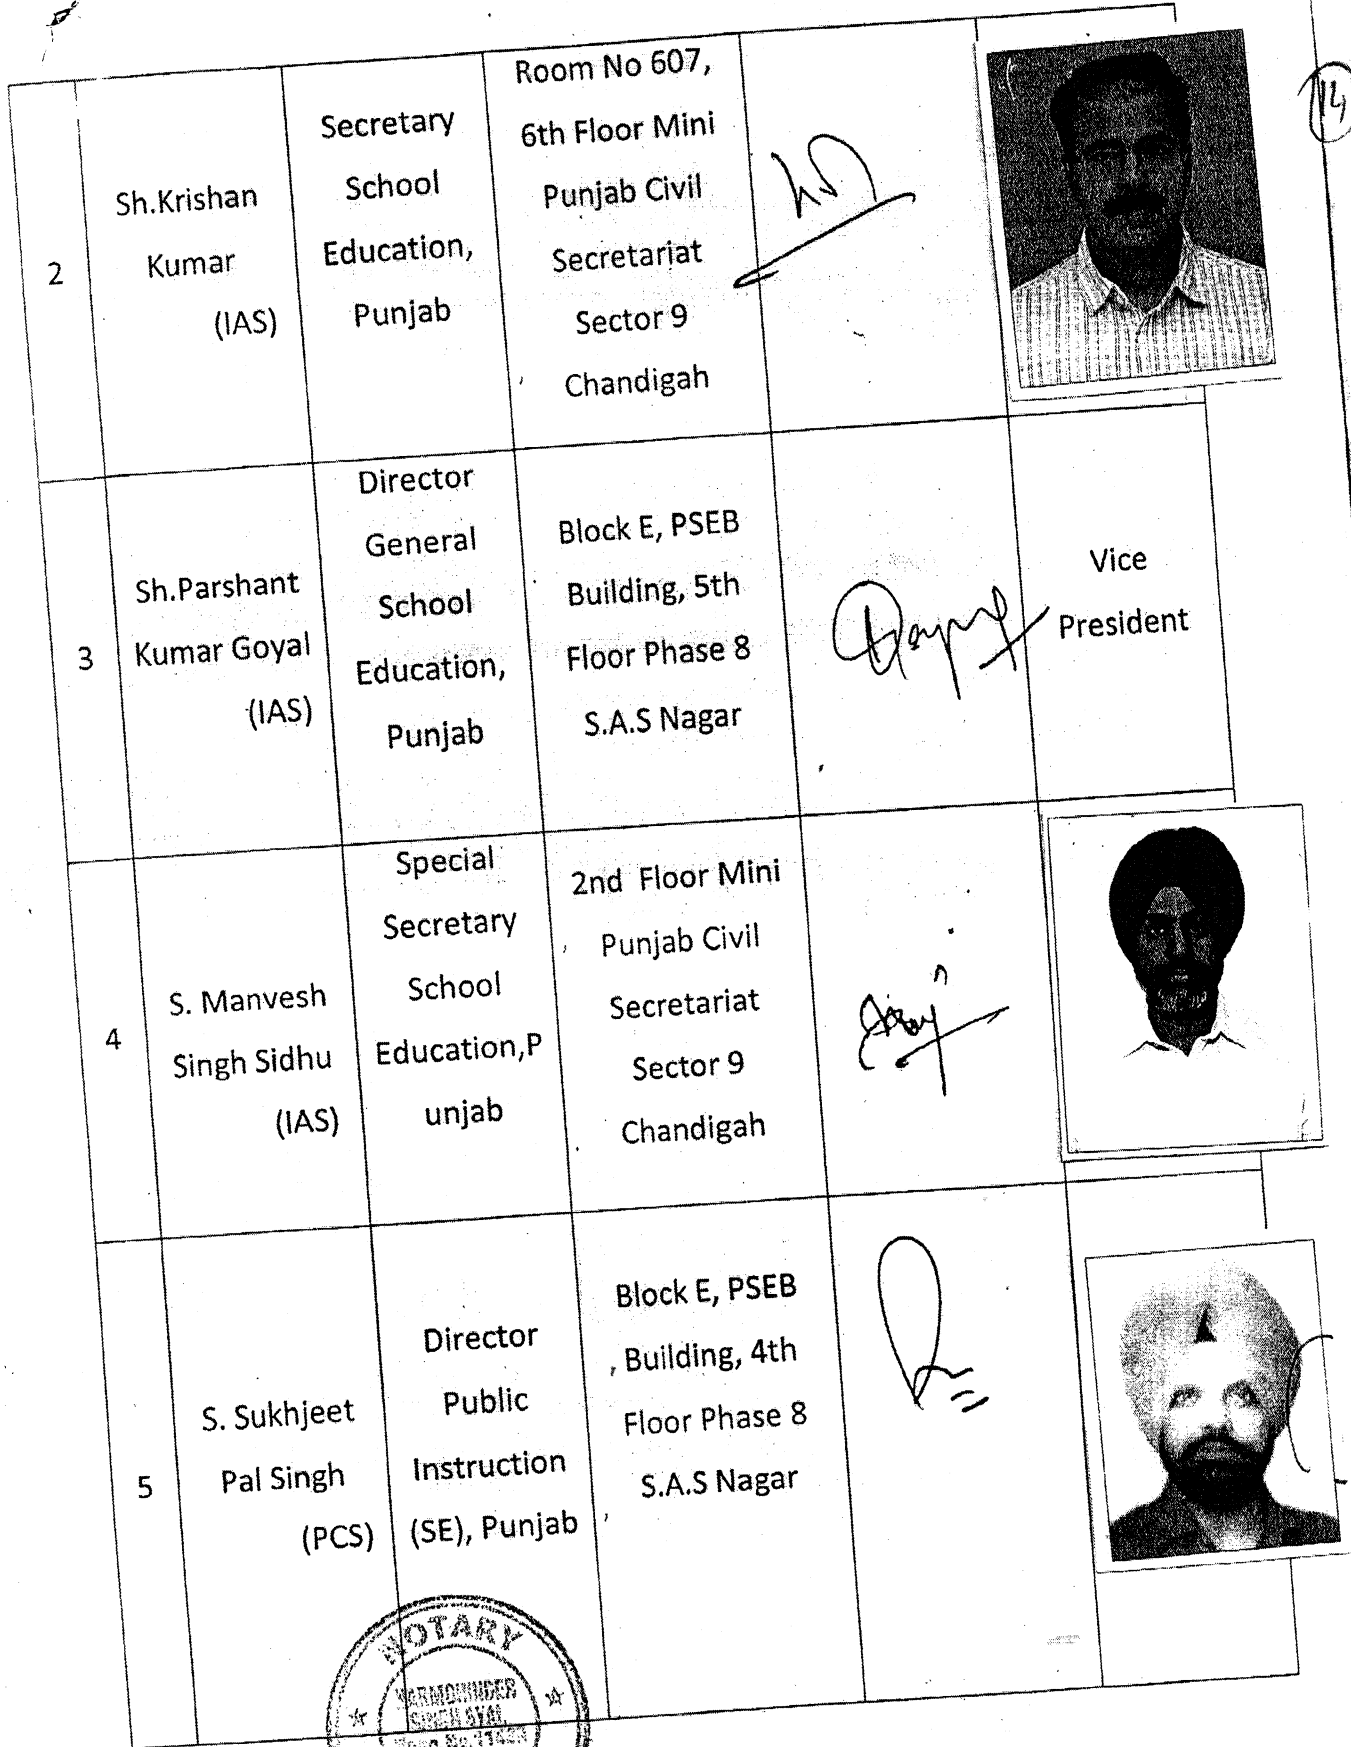 14
2
Sh.Krishan
Kumar
(IAS)
Secretary
School
Education,
Punjab
Room No 607,
6th Floor Mini
Punjab Civil
Secretariat
Sector 9
Chandigah
3
Sh.Parshant
Kumar Goyal
(IAS)
Director
General
School
Education,
Punjab
Block E, PSEB
Building, 5th
Floor Phase 8
S.A.S Nagar
Vice
President
4
S. Manvesh
Singh Sidhu
(IAS)
Special
Secretary
School
Education,P
unjab
2nd Floor Mini
Punjab Civil
Secretariat
Sector 9
Chandigah
5
S. Sukhjeet
Pal Singh
(PCS)
Director
Public
Instruction
(SE), Punjab
Block E, PSEB
Building, 4th
Floor Phase 8
S.A.S Nagar
NOTARY
HARMOHINDER
SINGH SYAL